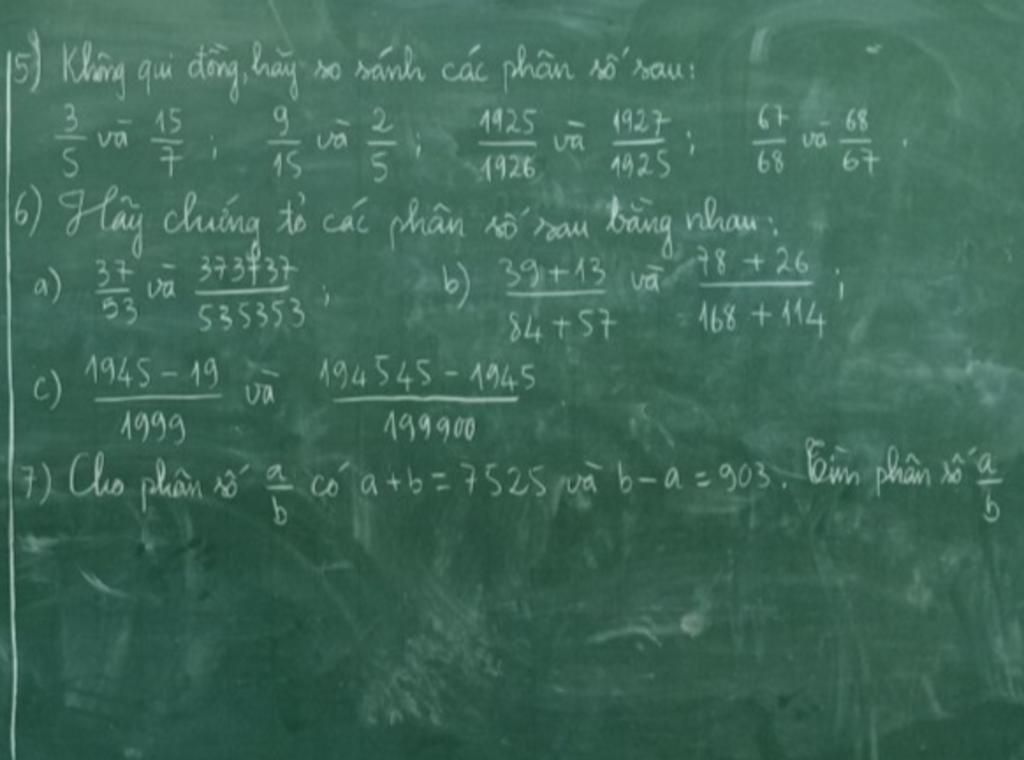 5) Không qui đồng, hãy so sánh các phân số sau:
3/5 và 15/7 ; 9/15 và 2/5 ; 1925/1926 và 1927/1925 ; 67/68 và 68/67 .
6) Hãy chứng tỏ các phân số sau bằng nhau:
a) 37/53 và 373737/535353 ; b) (39+13)/(84+57) và (78+26)/(168+114) ;
c) (1945-19)/1999 và (194545-1945)/199900
7) Cho phân số a/b có a+b=7525 và b-a=903. Tìm phân số a/b